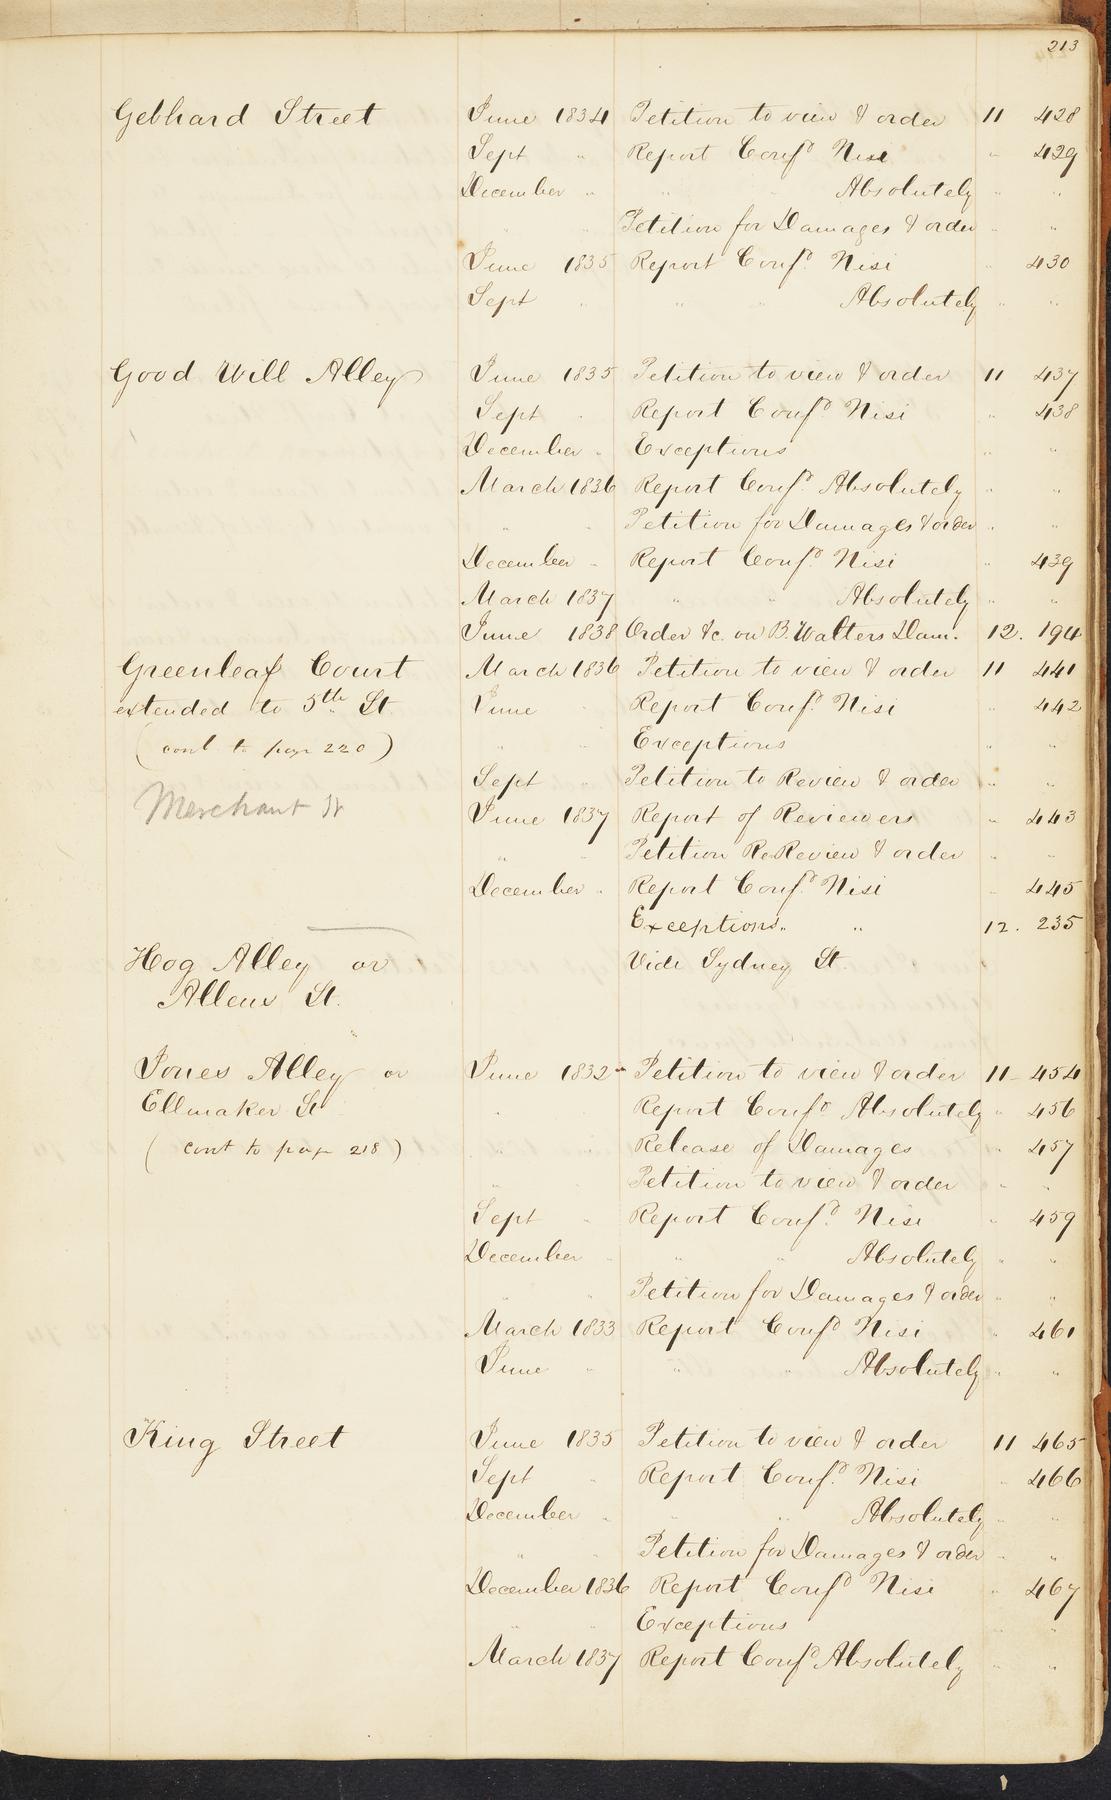 213
Gebhard Street June 1834 Petition to view & order 11 428
Sept " Report Conf.d Nisi " 429
December " " Absolutely " "
" " Petition for Damages & order " "
June 1835 Report Conf.d Nisi " 430
Sept " " " Absolutely " "
Good Will Alley June 1835 Petition to view & order 11 437
Sept " Report Conf.d Nisi " 438
December " Exceptions " "
March 1836 Report Conf.d Absolutely " "
" " Petition for Damages & order " "
December " Report Conf.d Nisi " 439
March 1837 " " Absolutely " "
June 1838 Order &c. on B. Walters Dam. 12. 194
Greenleaf Court March 1836 Petition to view & order 11 441
extended to 5th St. June Report Conf.d Nisi " 442
(cont to page 220) " " Exceptions " "
Sept " Petition to Review & order " "
Merchant St June 1837 Report of Reviewers " 443
" " Petition Re Review & order " "
December " Report Conf.d Nisi " 445
Exceptions " " 12. 235
Hog Alley or Vide Sydney St.
Allens St.
Jones Alley or June 1832 Petition to view & order 11 454
Ellmaker St " Report Conf.d Absolutely " 456
(cont to page 218) " " Release of Damages " 457
" Petition to view & order " "
Sept " Report Conf.d Nisi " 459
December " " " Absolutely " "
" " Petition for Damages & order " "
March 1833 Report Conf.d Nisi " 461
June " " " Absolutely " "
King Street June 1835 Petition to view & order 11 465
Sept " Report Conf.d Nisi " 466
December " " " Absolutely " "
" " Petition for Damages & order " "
December 1836 Report Conf.d Nisi " 467
" " Exceptions " "
March 1837 Report Conf.d Absolutely " "